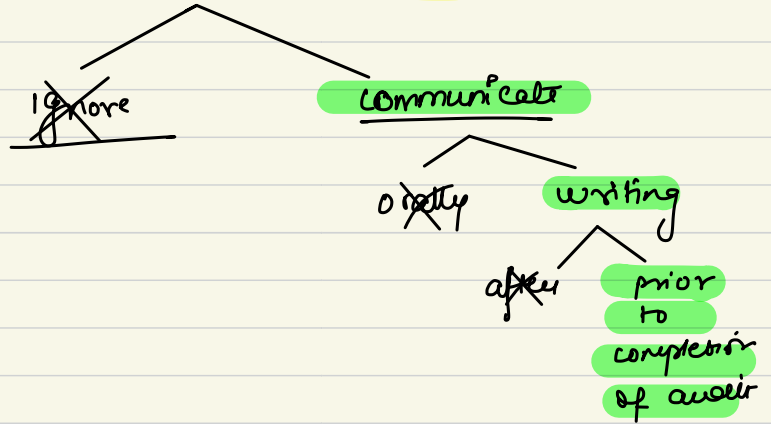 Ignore
communicate
orally
writing
after
prior
to
completion
of audit